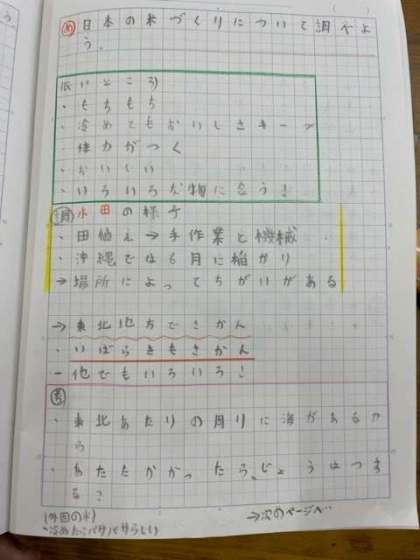 め 日本の米づくりについて調べよ
う。
(いいところ)
・もちもち
・冷めてもおいしさキープ
・体力がつく
・おいしい
・いろいろな物に合う!
水田の様子
・田植え→手作業と機械
・沖縄では6月に稲かり
→場所によってちがいがある
→東北地方でさかん
・いばらきもさかん
ー他でもいろいろ!
考
・東北あたりの周りに海があるか
ら
・あたたかかったら、じょうはつす
る?
(外国の米)
・冷めたらパサパサらしい
→次のページへ